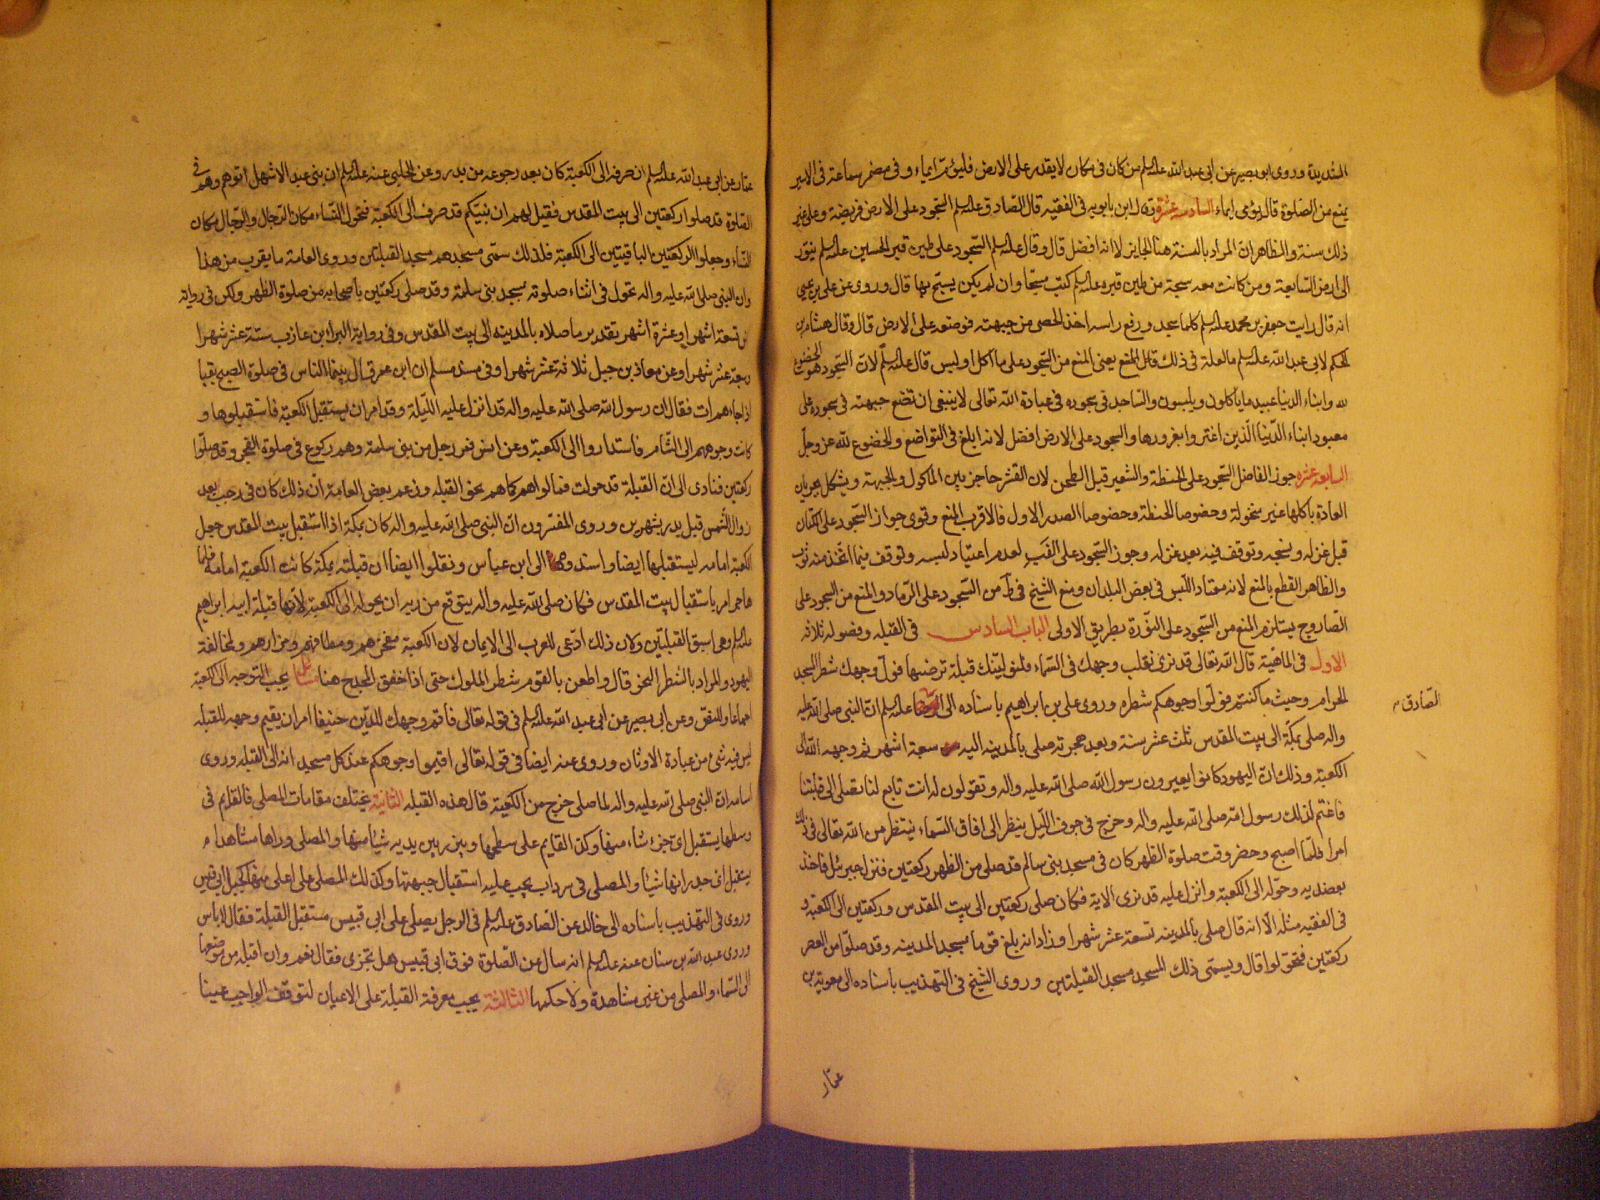 الشديدة وروى ابو بصير عن ابى عبد الله عليه السلم من كان فى مكان لا يقدر على الارض فليؤم ايماء وفى مضمر سماعة فى الاسير
يمنع من الصلوة قال يؤمى ايماء السادسة عشرة قال ابن بابويه فى الفقيه قال الصادق عليه السلم السجود على الارض فريضة وعلى غير
ذلك سنة والظاهر ان المراد بالسنة هنا الجايز لا انه افضل قال وقال عليه السلم السجود على طين قبر الحسين عليه السلم ينور
الى الارض السابعة ومن كانت معه سبحة من طين قبره عليه السلم كتب مسبحا وان لم يكن يسبح بها قال وروى عن على بن يحيى
انه قال رايت جعفر بن محمد عليه السلم كلما سجد ورفع راسه اخذ الحصى من جبهته فوضعه على الارض قال وقال هشام بن
الحكم لابى عبد الله عليه السلم ما العلة فى ذلك قبل المنع يعنى المنع من السجود على ما اكل او لبس قال عليه السلم لان السجود هو الخضوع
لله وابناء الدنيا عبيد ما ياكلون ويلبسون والساجد فى سجوده فى عبادة الله تعالى لا ينبغى ان تضع جبهته فى سجوده على
معبود ابناء الدنيا الذين اغتروا بغرورها والسجود على الارض افضل لانه ابلغ فى التواضع والخضوع لله عز وجل
السابعة عشرة جوز الفاضل السجود على الحنطة والشعير قبل الطحن لان القشر حاجز بين الماكول والجبهة ويشكل بجريان
العادة باكلها غير منخولة وخصوصا الحنطة وخصوصا الصدر الاول فالاقرب المنع وقوى جواز السجود على الكتان
قبل غزله ونسجه وتوقف فيه بعد غزله وجوز السجود على القنب لعدم اعتياد لبسه وتوقف فيما اتخذ منه ثوب
والظاهر القطع بالمنع لانه معتاد اللبس فى بعض البلدان ومنع الشيخ فى ط من السجود على الرماد والمنع من السجود على
الصاروج يستلزم المنع من السجود على النورة بطريق الاولى الباب السادس فى القبلة وفصوله ثلاثة
الاول فى الماهية قال الله تعالى قد نرى تقلب وجهك فى السماء فلنولينك قبلة ترضيها فول وجهك شطر المسجد
الحرام وحيث ما كنتم فولوا وجوهكم شطره وروى على بن ابراهيم باسناده الى عليه السلم ان النبى صلى الله عليه
الصادق
واله صلى بمكة الى بيت المقدس ثلث عشر سنة وبعد هجرته صلى بالمدينة اليه سبعة اشهر ثم وجهه الله الى
الكعبة وذلك ان اليهود كانوا يعيرون رسول الله صلى الله عليه واله ويقولون له انت تابع لنا تصلى الى قبلتنا
فاغتم لذلك رسول الله صلى الله عليه واله وخرج فى جوف الليل ينظر الى افاق السماء ينتظر من الله تعالى فى ذلك
امرا فلما اصبح وحضر وقت صلوة الظهر كان فى مسجد بنى سالم قد صلى من الظهر ركعتين فنزل جبرئيل فاخذ
بعضديه وحوله الى الكعبة وانزل عليه قد نرى الاية فكان صلى ركعتين الى بيت المقدس وركعتين الى الكعبة و
فى الفقيه مثله الا انه قال صلى بالمدينة تسعة عشر شهرا وزاد انه بلغ قوما مسجد المدينة وقد صلوا من العصر
ركعتين فتحولوا قال ويسمى ذلك المسجد مسجد القبلتين وروى الشيخ فى التهذيب باسناده الى معوية بن
عمار
عمار عن ابى عبد الله عليه السلم ان صرفه الى الكعبة كان بعد رجوعه من بدر وعن الحلبى عنه عليه السلم ان بنى عبد الاشهل اتوهم وهم فى
الصلوة قد صلوا ركعتين الى بيت المقدس فقيل لهم ان نبيكم قد صرف الى الكعبة فتحول النساء مكان الرجال والرجال مكان
النساء وجعلوا الركعتين الباقيتين الى الكعبة فلذلك سمى مسجدهم مسجد القبلتين وروى العامة ما يقرب من هذا
وان النبى صلى الله عليه واله تحول فى اثناء صلوته بمسجد بنى سلمة وقد صلى ركعتين باصحابه من صلوة الظهر ولكن فى رواية
تسعة اشهر او عشرة اشهر بقدير ما صلاه بالمدينة الى بيت المقدس وفى رواية البراء ابن عازب ستة عشر شهرا
سبعة عشر شهرا وعن معاذ بن جبل ثلاثة عشر شهرا وفى مسند مسلم ان ابن عمر قال بينما الناس فى صلوة الصبح بقبا
اذ جاءهم ات فقال ان رسول الله صلى الله عليه واله قد انزل عليه الليلة وقد امر ان يستقبل الكعبة فاستقبلوها و
كانت وجوههم الى الشام فاستداروا الى الكعبة وعن انس فمر رجل من بنى سلمة وهم ركوع فى صلوة الفجر وقد صلوا
ركعتين فنادى الى ان القبلة قد حولت فمالوا هم كما هم نحو القبلة وزعم بعض العامة ان ذلك كان فى رجب بعد
زوال الشمس قبل بدر بشهرين وروى المفسرون ان النبى صلى الله عليه واله كان بمكة اذا استقبل بيت المقدس جعل
الكعبة امامه ليستقبلها ايضا واسندوه الى ابن عباس ونقلوا ايضا ان قبلته بمكة كانت الكعبة امامه فلما
هاجر امر باستقبال بيت المقدس فكان صلى الله عليه واله يتوقع من ربه ان يحوله الى الكعبة لانها قبلة ابيه ابراهيم
عليه السلم وهى اسبق القبلتين وكان ذلك ادعى للعرب الى الايمان لان الكعبة مفخرهم ومطافهم ومزارهم ولمخالفة
اليهود والمراد بالشطر النحو قال واطعن بالقوم شطر الملوك حتى اذا خفق المجدح هنا مسائل يجب التوجه الى الكعبة
اجماعا وللنص وعن ابى بصير عن ابى عبد الله عليه السلم فى قوله تعالى فاقم وجهك للدين حنيفا امر ان يقيم وجهه للقبلة
ليس فيه شىء من عبادة الاوثان وروى عنه ايضا فى قوله تعالى اقيموا وجوهكم عند كل مسجد انه الى القبلة وروى
اسامه ان النبى صلى الله عليه واله لما صلى خرج من الكعبة قال هذه القبلة الثانية يختلف مقامات المصلى فالقايم فى
وسطها يستقبل اى جزء شاء منها وكذا القايم على سطحها ويبرز بين يديه شيئا منها والمصلى وراها مشاهدا
يستقبل اى جدرانها شيئا والمصلى فى سرداب يجب عليه استقبال جهتها وكذلك المصلى على اعلى منها كجبل ابى قبيس
وروى فى التهذيب باسناده الى خالد عن الصادق عليه السلم فى الرجل يصلى على ابى قبيس مستقبل القبلة فقال لا باس
وروى عبد الله بن سنان عنه عليه السلم انه سال عن الصلوة فوق ابى قبيس هل تجزى فقال نعم وان اقبله من موضعها
الى السماء والمصلى من غير مشاهدة ولا حكمها الثالثة يجب معرفة القبلة على الاعيان لتوقف الواجب عينا